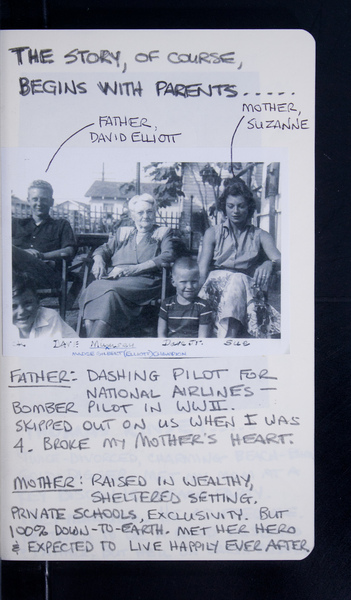 THE STORY, OF COURSE,
BEGINS WITH PARENTS.....
FATHER,
DAVID ELLIOTT
MOTHER,
SUZANNE
DAVE
SUE
FATHER: DASHING PILOT FOR
NATIONAL AIRLINES —
BOMBER PILOT IN WWII.
SKIPPED OUT ON US WHEN I WAS
4. BROKE MY MOTHER'S HEART.
MOTHER: RAISED IN WEALTHY,
SHELTERED SETTING.
PRIVATE SCHOOLS, EXCLUSIVITY. BUT
100% DOWN-TO-EARTH. MET HER HERO
& EXPECTED TO LIVE HAPPILY EVER AFTER